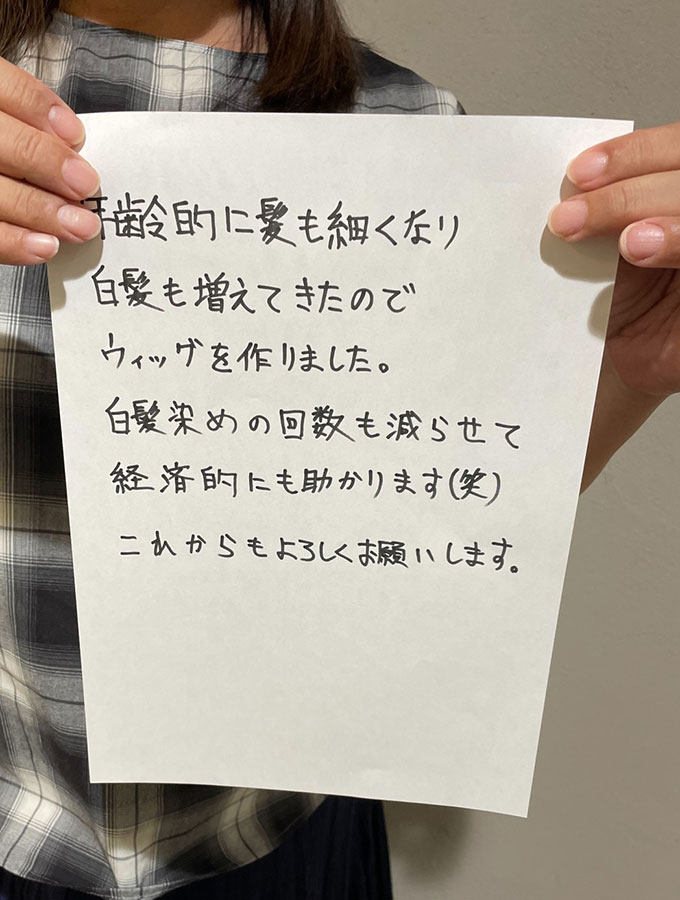 年齢的に髪も細くなり
白髪も増えてきたので
ウィッグを作りました。
白髪染めの回数も減らせて
経済的にも助かります(笑)
これからもよろしくお願いします。